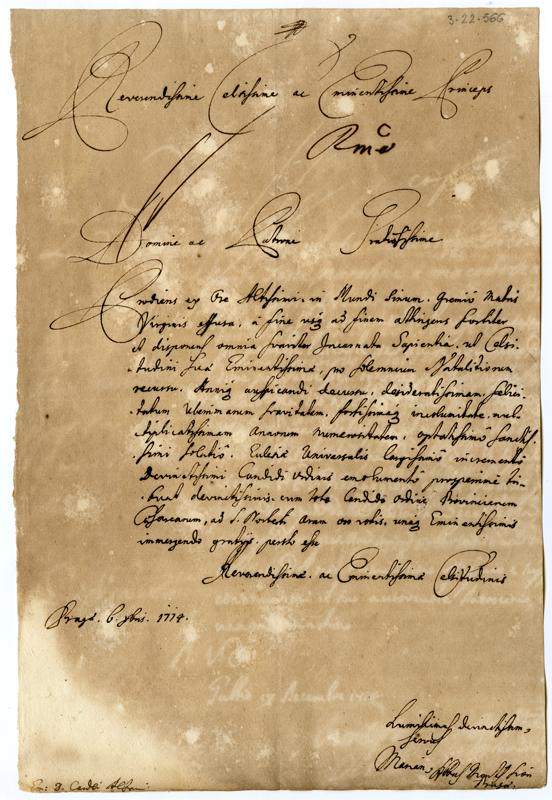 3-22-566
Reverendissime Celsissime ac Eminentissime Princeps
Domine ac Patrone Gratiosissime
Prodiens ex Ore Altissimi, in Mundi sinum, gremio Matris
Virginis effusa, à fine usq ad finem attingens fortiter
et disponens omnia suaviter Incarnata Sapientia, ut Celsi-
tudini Suæ Eminentissimæ, pro solemnium Natalitiorum
recursu, Anniq auspicandi decursu, desideratissimam felici-
tatum
suavitatem, fortissimaq incolumitate, mul-
tiplicatissimam Annorum numerositatem, optatissimo Sanctis-
simi solatio, Ecclesiæ Universalis largissimo incremento
Devinctissimi Candidi Ordinis emolumento prosperrime tri-
buat devinctissimis, cum toto Candido Ordine Provinciarum
ad S. Norberti Aram oro votis, unaq Eminentissimis
immergendo gratijs, persto esse
Reverendissimæ ac Eminentissimæ Celsitudinis
Pragæ 6. xbris. 1714.
humillimus devinctissim,
servus
Marian, Abbas
Em: D. Cardli Albani